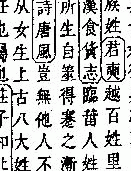 族姓君奭越百姓里
漢食貨志臨菑人姓
所自生得塞之漸
詩唐風豈無他人不
从女生上古八大姓